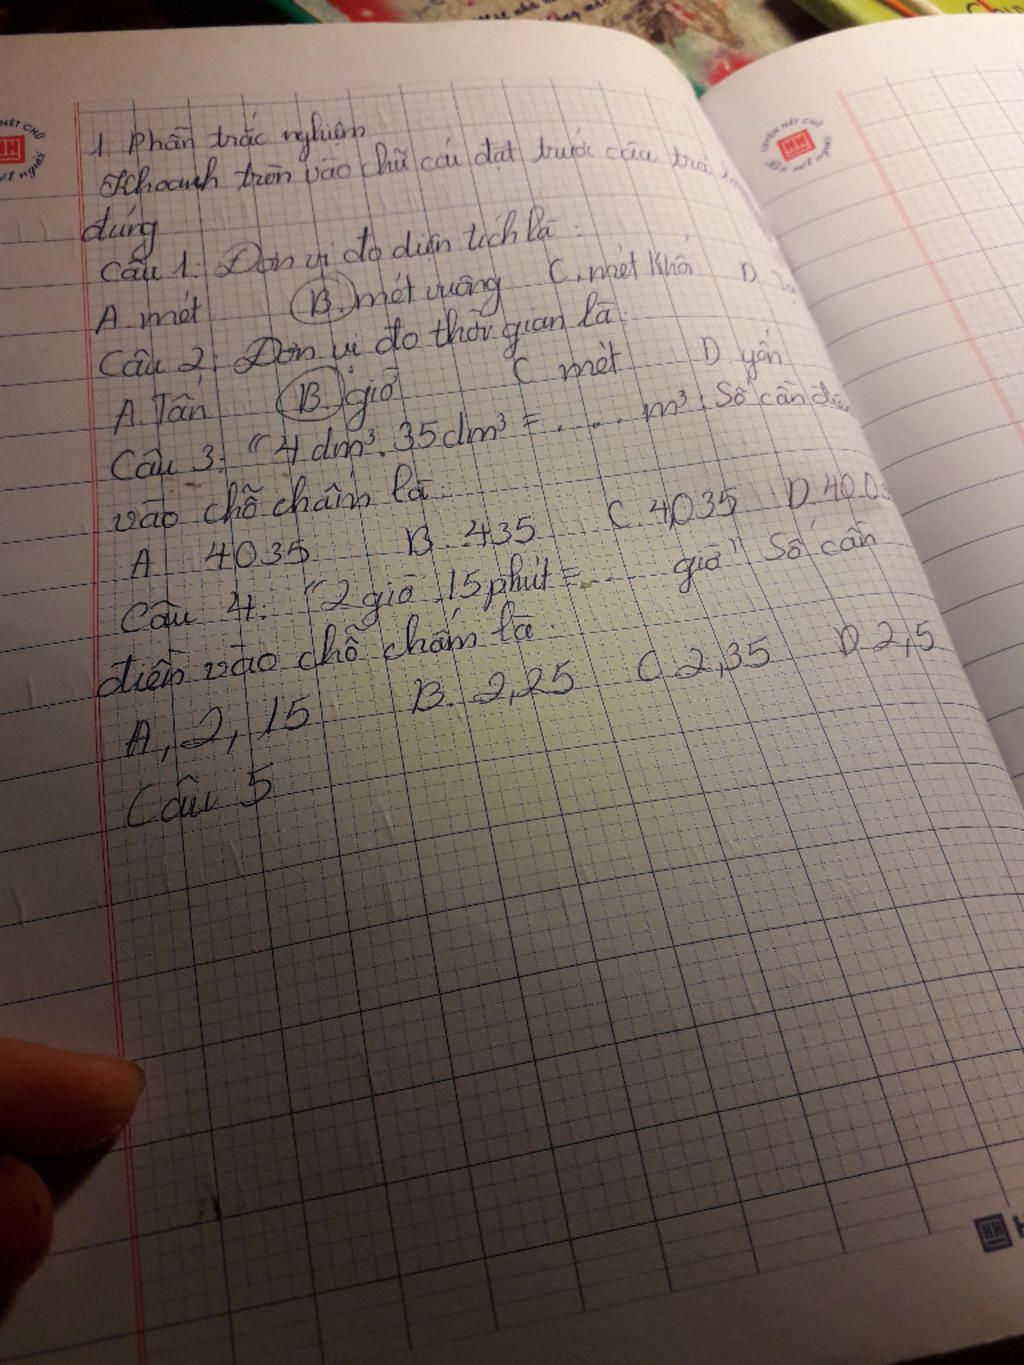 1. Phần trắc nghiệm
Khoanh tròn vào chữ cái đặt trước câu trả
đúng
Câu 1: Đơn vị đo diện tích là:
A. mét B. mét vuông C. mét khối D.
Câu 2: Đơn vị đo thời gian là:
A. Tấn B. giờ C mét D yến
Câu 3: "4 dm³. 35dm³ = ..... m³. Số cần
vào chỗ chấm là:
A 4035 B. 435 C. 4,035 D.
Câu 4: "2 giờ 15 phút = ..... giờ" Số cần
điền vào chỗ chấm là:
A, 2,15 B. 2,25 C 2,35 D 2,5
Câu 5
HH
HH
HH